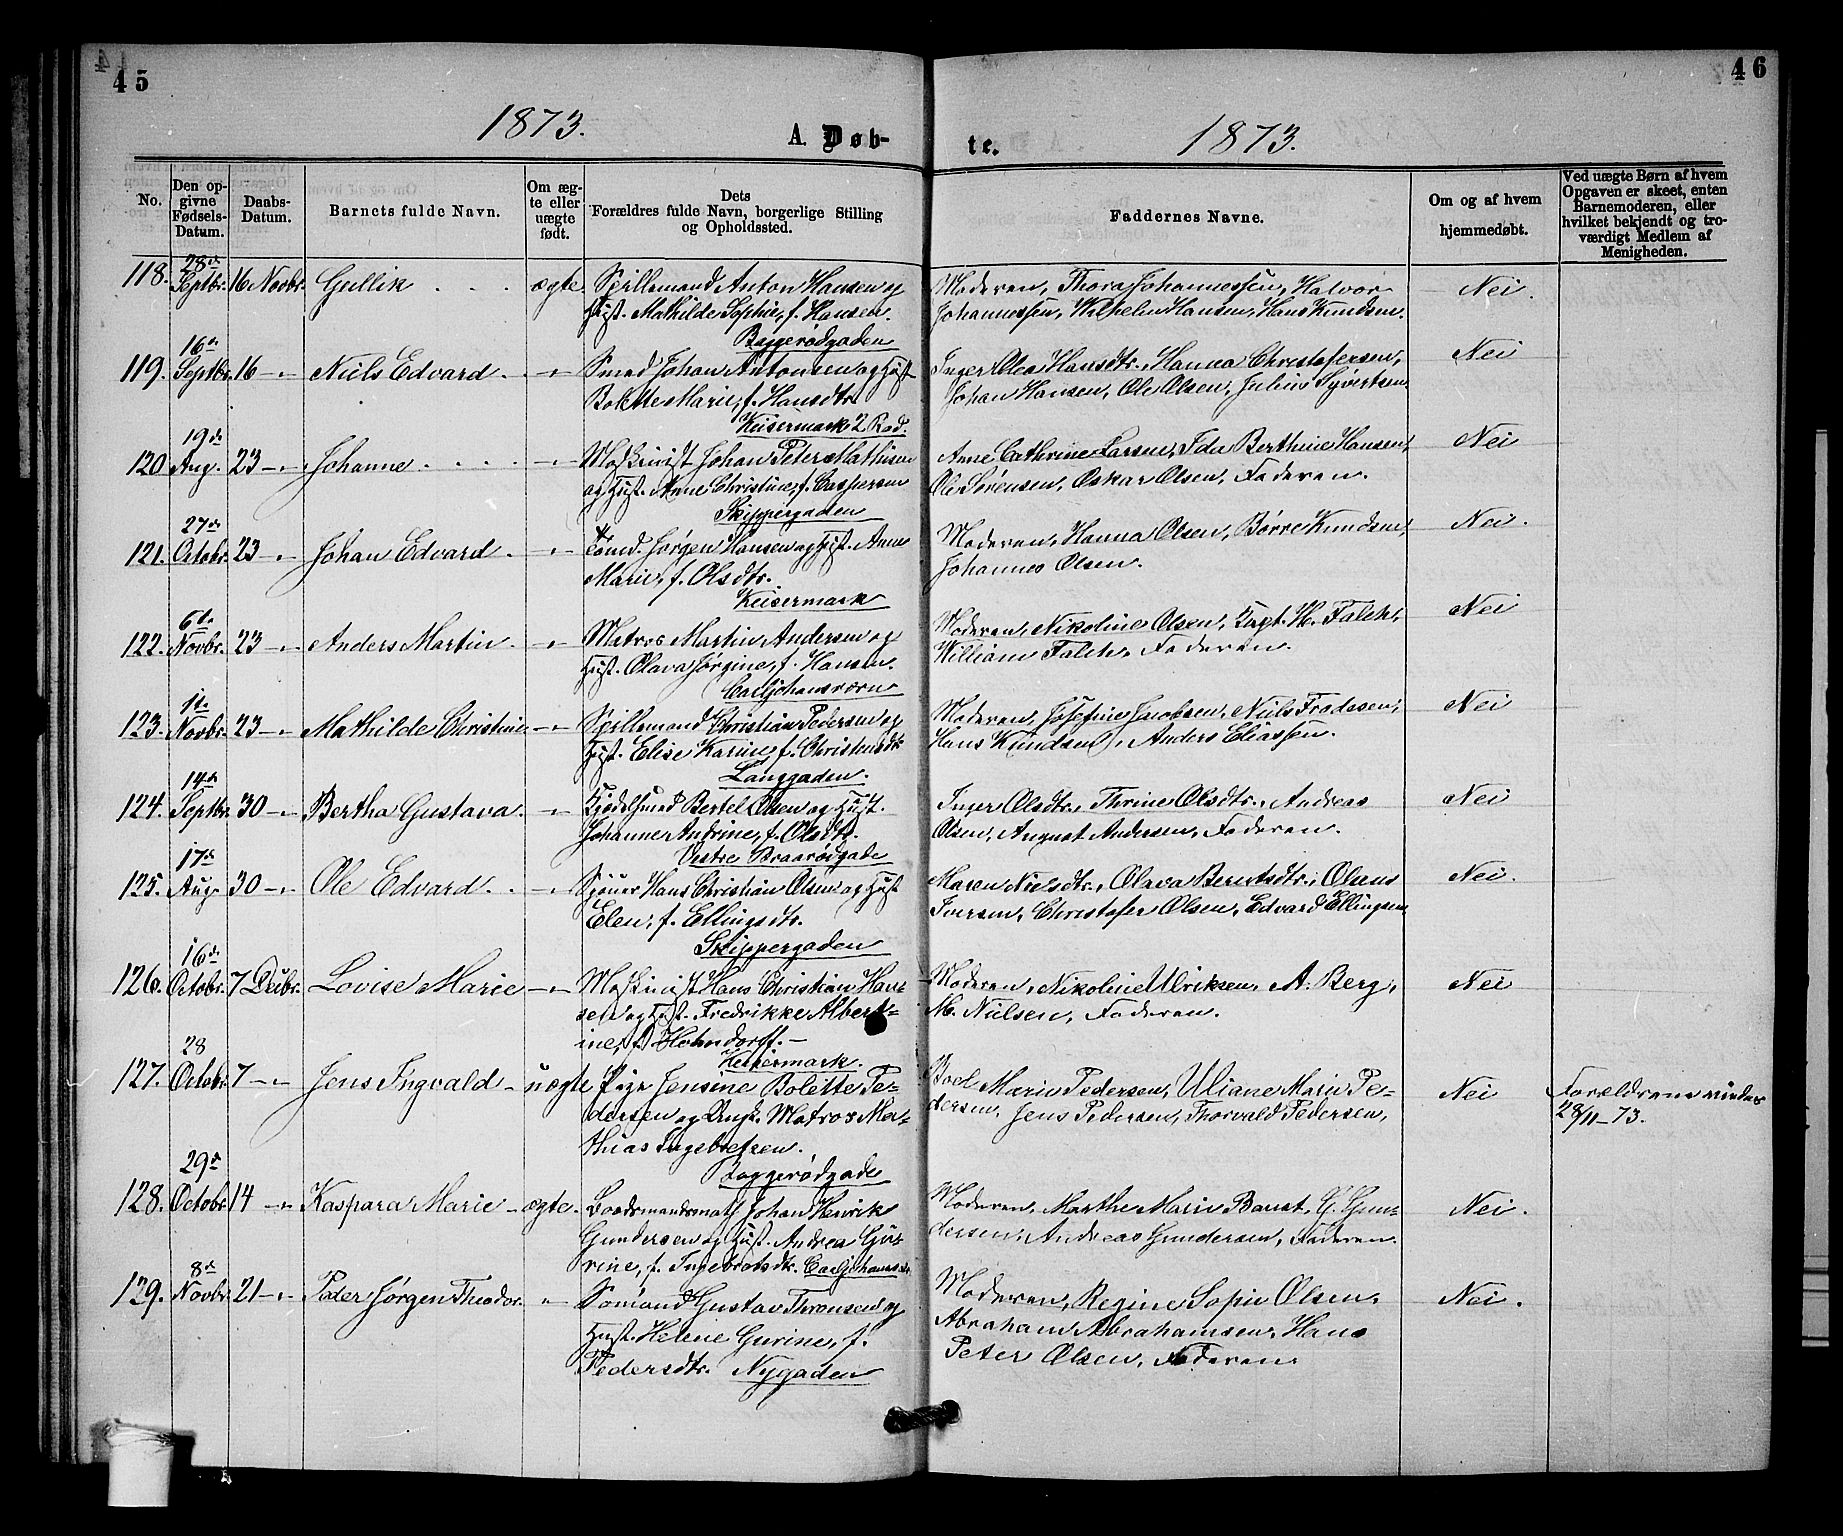 45
46
1873.
A. Døb-
te.
1873.
No.
Den op-
givne
Fødsels-
Datum.
Daabs-
Datum.
Barnets fulde Navn.
Om æg-
te eller
uægte
født.
Dets
Forældres fulde Navn, borgerlige Stilling
og Opholdssted.
Faddernes Navne.
Om og af hvem
hjemmedøbt.
Ved uægte Børn af hvem
Opgaven er skeet, enten
Barnemoderen, eller
hvilket bekjendt og tro-
værdigt Medlem af
Menigheden.
28de
118. Septbr. 16 Novbr. Gullik ægte Spillemand Anton Hansen og
Hust. Mathilde Sophie, f. Hansen.
Baggerødgaden
Moderen, Thora Johannessen, Halvor
Johannessen, Wilhelm Hansen, Hans Knudsen.
Nei.
16de
119. Septbr. 16 -"- Niels Edvard -"- Smed Johan Antonsen og Hust
Bolette Marie, f. Hansdtr.
Keisermark 2 Rad.
Inger Olea Hansdtr., Hanna Christofersen,
Johan Hansen, Ole Olsen, Julius Syvertsen
Nei
19de
120. Aug. 23 -"- Johanne -"- Maskinist Johan Peter Mathisen
og Hust. Anne Christine, f. Caspersen
Skippergaden
Anne Cathrine Larsen, Ida Berthine Hansen,
Ole Sørensen, Oskar Olsen, Faderen.
Nei
27de
121. Octobr. 23 -"- Johan Edvard -"- Tømd. Jørgen Hansen og Hust. Anne
Marie, f. Olsdtr.
Keisermark
Moderen, Hanna Olsen, Børre Knudsen,
Johannes Olsen.
Nei.
6te
122. Novbr. 23 -"- Anders Martin -"- Matros Martin Andersen og
Hust. Olava Jørgine, f. Hansen.
Carljohansværn
Moderen, Nikoline Olsen, Kapt. H. Falck,
William Falck, Faderen.
Nei
1te
123. Novbr. 23 -"- Mathilde Christine -"- Spillemand Christian Pedersen og
Hust. Elise Karine, f. Christensdtr
Langgaden.
Moderen, Josefine Jacobsen, Niels Fradesen,
Hans Knudsen, Anders Eliassen.
Nei
14de
124. Septbr. 30 -"- Bertha Gustava -"- Kjedelsmed Bertel Olsen og Hust.
Johanne Andrine, f. Olsdtr.
Vestre Braarødgade
Inger Olsdtr., Thrine Olsdtr., Andreas
Olsen, August Andersen, Faderen.
Nei
17de
125. Aug. 30 -"- Ole Edvard -"- Sjouer Hans Christian Olsen og Hust
Elen, f. Ellingsdtr.
Skippergaden
Maren Nielsdtr., Olava Berntsdtr., Olaus
Iversen, Christofer Olsen, Edvard Ellingsen
Nei.
16de
126. Octobr. 7 Decbr. Lovise Marie -"- Maskinist Hans Christian Han-
sen og Hust. Fredrikke Albert-
ine, f. Hohndorff.-
Keisermark.
Moderen, Nikoline Ulriksen, A. Berg,
M. Nielsen, Faderen.
Nei
28
127. Octobr. 7 -"- Jens Ingvald - uægte Pige Jensine Bolette Pe-
dersen og Ungk. Matros Ma-
thias Ingebretsen.
Baggerødgade
Boel Marie Pedersen, Uliane Marie Pe-
dersen, Jens Pedersen, Thorvald Pedersen,
Nei
Forældrene viedes
28/11-73.
29de
128. Octobr. 14 -"- Kaspara Marie - ægte. Baadsmandsmath Johan Henrik
Gundersen og Hust. Andrea Gu-
rine, f. Ingebretsdtr. Carljohansv.
Moderen, Marthe Marie Banst, G. Gun-
dersen, Andreas Gundersen, Faderen.
Nei.
8de
129. Novbr. 21 -"- Peder Jørgen Theodor. " Sømand Gustav Thronsen og
Hust. Helene Gurine, f.
Pedersdtr. Nygaden
Moderen, Regine Sopie Olsen,
Abraham Abrahamsen, Hans
Peter Olsen, Faderen.
Nei.